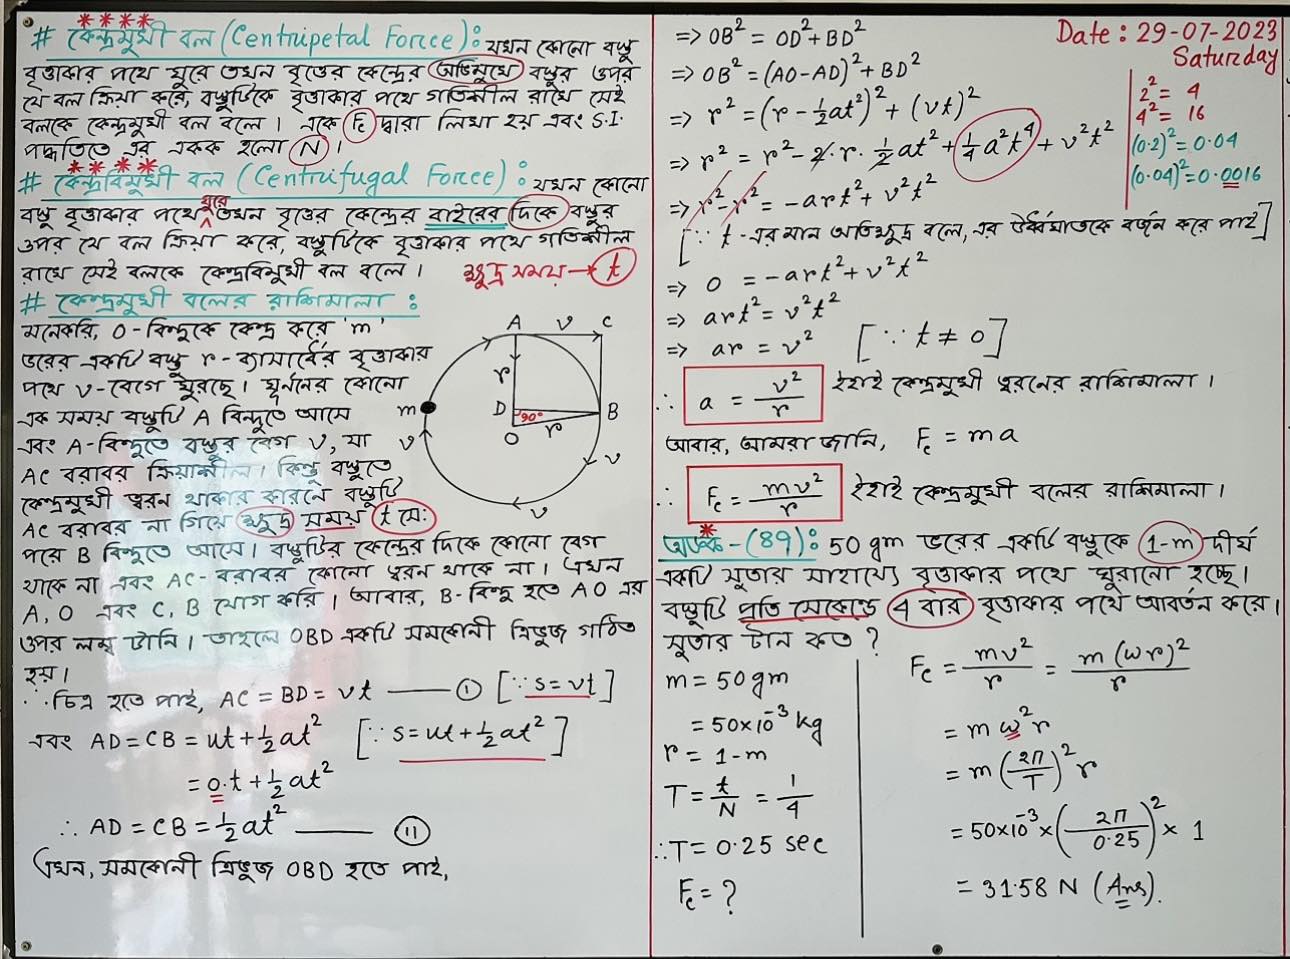 # কেন্দ্রমুখী বল (Centripetal Force): যখন কোনো বস্তু
বৃত্তাকার পথে ঘুরে তখন বৃত্তের কেন্দ্রের অভিমুখে বস্তুর ওপর
যে বল ক্রিয়া করে, বস্তুটিকে বৃত্তাকার পথে গতিশীল রাখে সেই
বলকে কেন্দ্রমুখী বল বলে। একে Fc দ্বারা লিখা হয় এবং S.I.
পদ্ধতিতে এর একক হলো N।
# কেন্দ্রবিমুখী বল (Centrifugal Force): যখন কোনো
বস্তু বৃত্তাকার পথে ঘুরে তখন বৃত্তের কেন্দ্রের বাইরের দিকে বস্তুর
ওপর যে বল ক্রিয়া করে, বস্তুটিকে বৃত্তাকার পথে গতিশীল
রাখে সেই বলকে কেন্দ্রবিমুখী বল বলে।
ক্ষুদ্র সময় → t
# কেন্দ্রমুখী বলের রাশিমালা :
মনেকরি, O-বিন্দুকে কেন্দ্র করে 'm'
ভরের একটি বস্তু r-ব্যাসার্ধের বৃত্তাকার
পথে v-বেগে ঘুরছে। ঘূর্ননের কোনো
এক সময় বস্তুটি A বিন্দুতে আসে
এবং A-বিন্দুতে বস্তুর বেগ v, যা
AC বরাবর ক্রিয়াশীল। কিন্তু বস্তুতে
কেন্দ্রমুখী ত্বরন থাকার কারনে বস্তুটি
AC বরাবর না গিয়ে ক্ষুদ্র সময় t সে:
পরে B বিন্দুতে আসে। বস্তুটির কেন্দ্রের দিকে কোনো বেগ
থাকে না এবং AC-বরাবর কোনো ত্বরন থাকে না। এখন
A, O এবং C, B যোগ করি। আবার, B-বিন্দু হতে AO এর
ওপর লম্ব টানি। তাহলে OBD একটি সমকোনী ত্রিভুজ গঠিত
হয়।
A v C
r
m D 90° B
O r
v v
v
∴ চিত্র হতে পাই, AC = BD = vt —— (i) [∵ s = vt]
এবং AD = CB = ut + ½at² [∵ s = ut + ½at²]
= 0.t + ½at²
∴ AD = CB = ½at² —— (ii)
এখন, সমকোনী ত্রিভুজ OBD হতে পাই,
=> OB² = OD² + BD²
=> OB² = (AO-AD)² + BD²
=> r² = (r - ½at²)² + (vt)²
=> r² = r² - 2.r.½at² + ¼a²t⁴ + v²t²
=> r² - r² = -art² + v²t²
[∵ t-এর মান অতিক্ষুদ্র বলে, এর ঊর্ধ্বঘাতকে বর্জন করে পাই]
=> 0 = -art² + v²t²
=> art² = v²t²
=> ar = v² [∵ t ≠ 0]
∴ a = v²/r ইহাই কেন্দ্রমুখী ত্বরনের রাশিমালা।
আবার, আমরা জানি, Fc = ma
∴ Fc = mv²/r ইহাই কেন্দ্রমুখী বলের রাশিমালা।
Date: 29-07-2023
Saturday
2² = 4
4² = 16
(0.2)² = 0.04
(0.04)² = 0.0016
অংক-(89): 50 gm ভরের একটি বস্তুকে 1-m দীর্ঘ
একটি সুতার সাহায্যে বৃত্তাকার পথে ঘুরানো হচ্ছে।
বস্তুটি প্রতি সেকেন্ডে 4 বার বৃত্তাকার পথে আবর্তন করে।
সুতার টান কত?
m = 50gm
= 50×10⁻³ kg
r = 1-m
T = t/N = 1/4
∴ T = 0.25 sec
Fc = ?
Fc = mv²/r = m(ωr)²/r
= mω²r
= m(2π/T)² r
= 50×10⁻³ × (2π/0.25)² × 1
= 31.58 N (Ans).